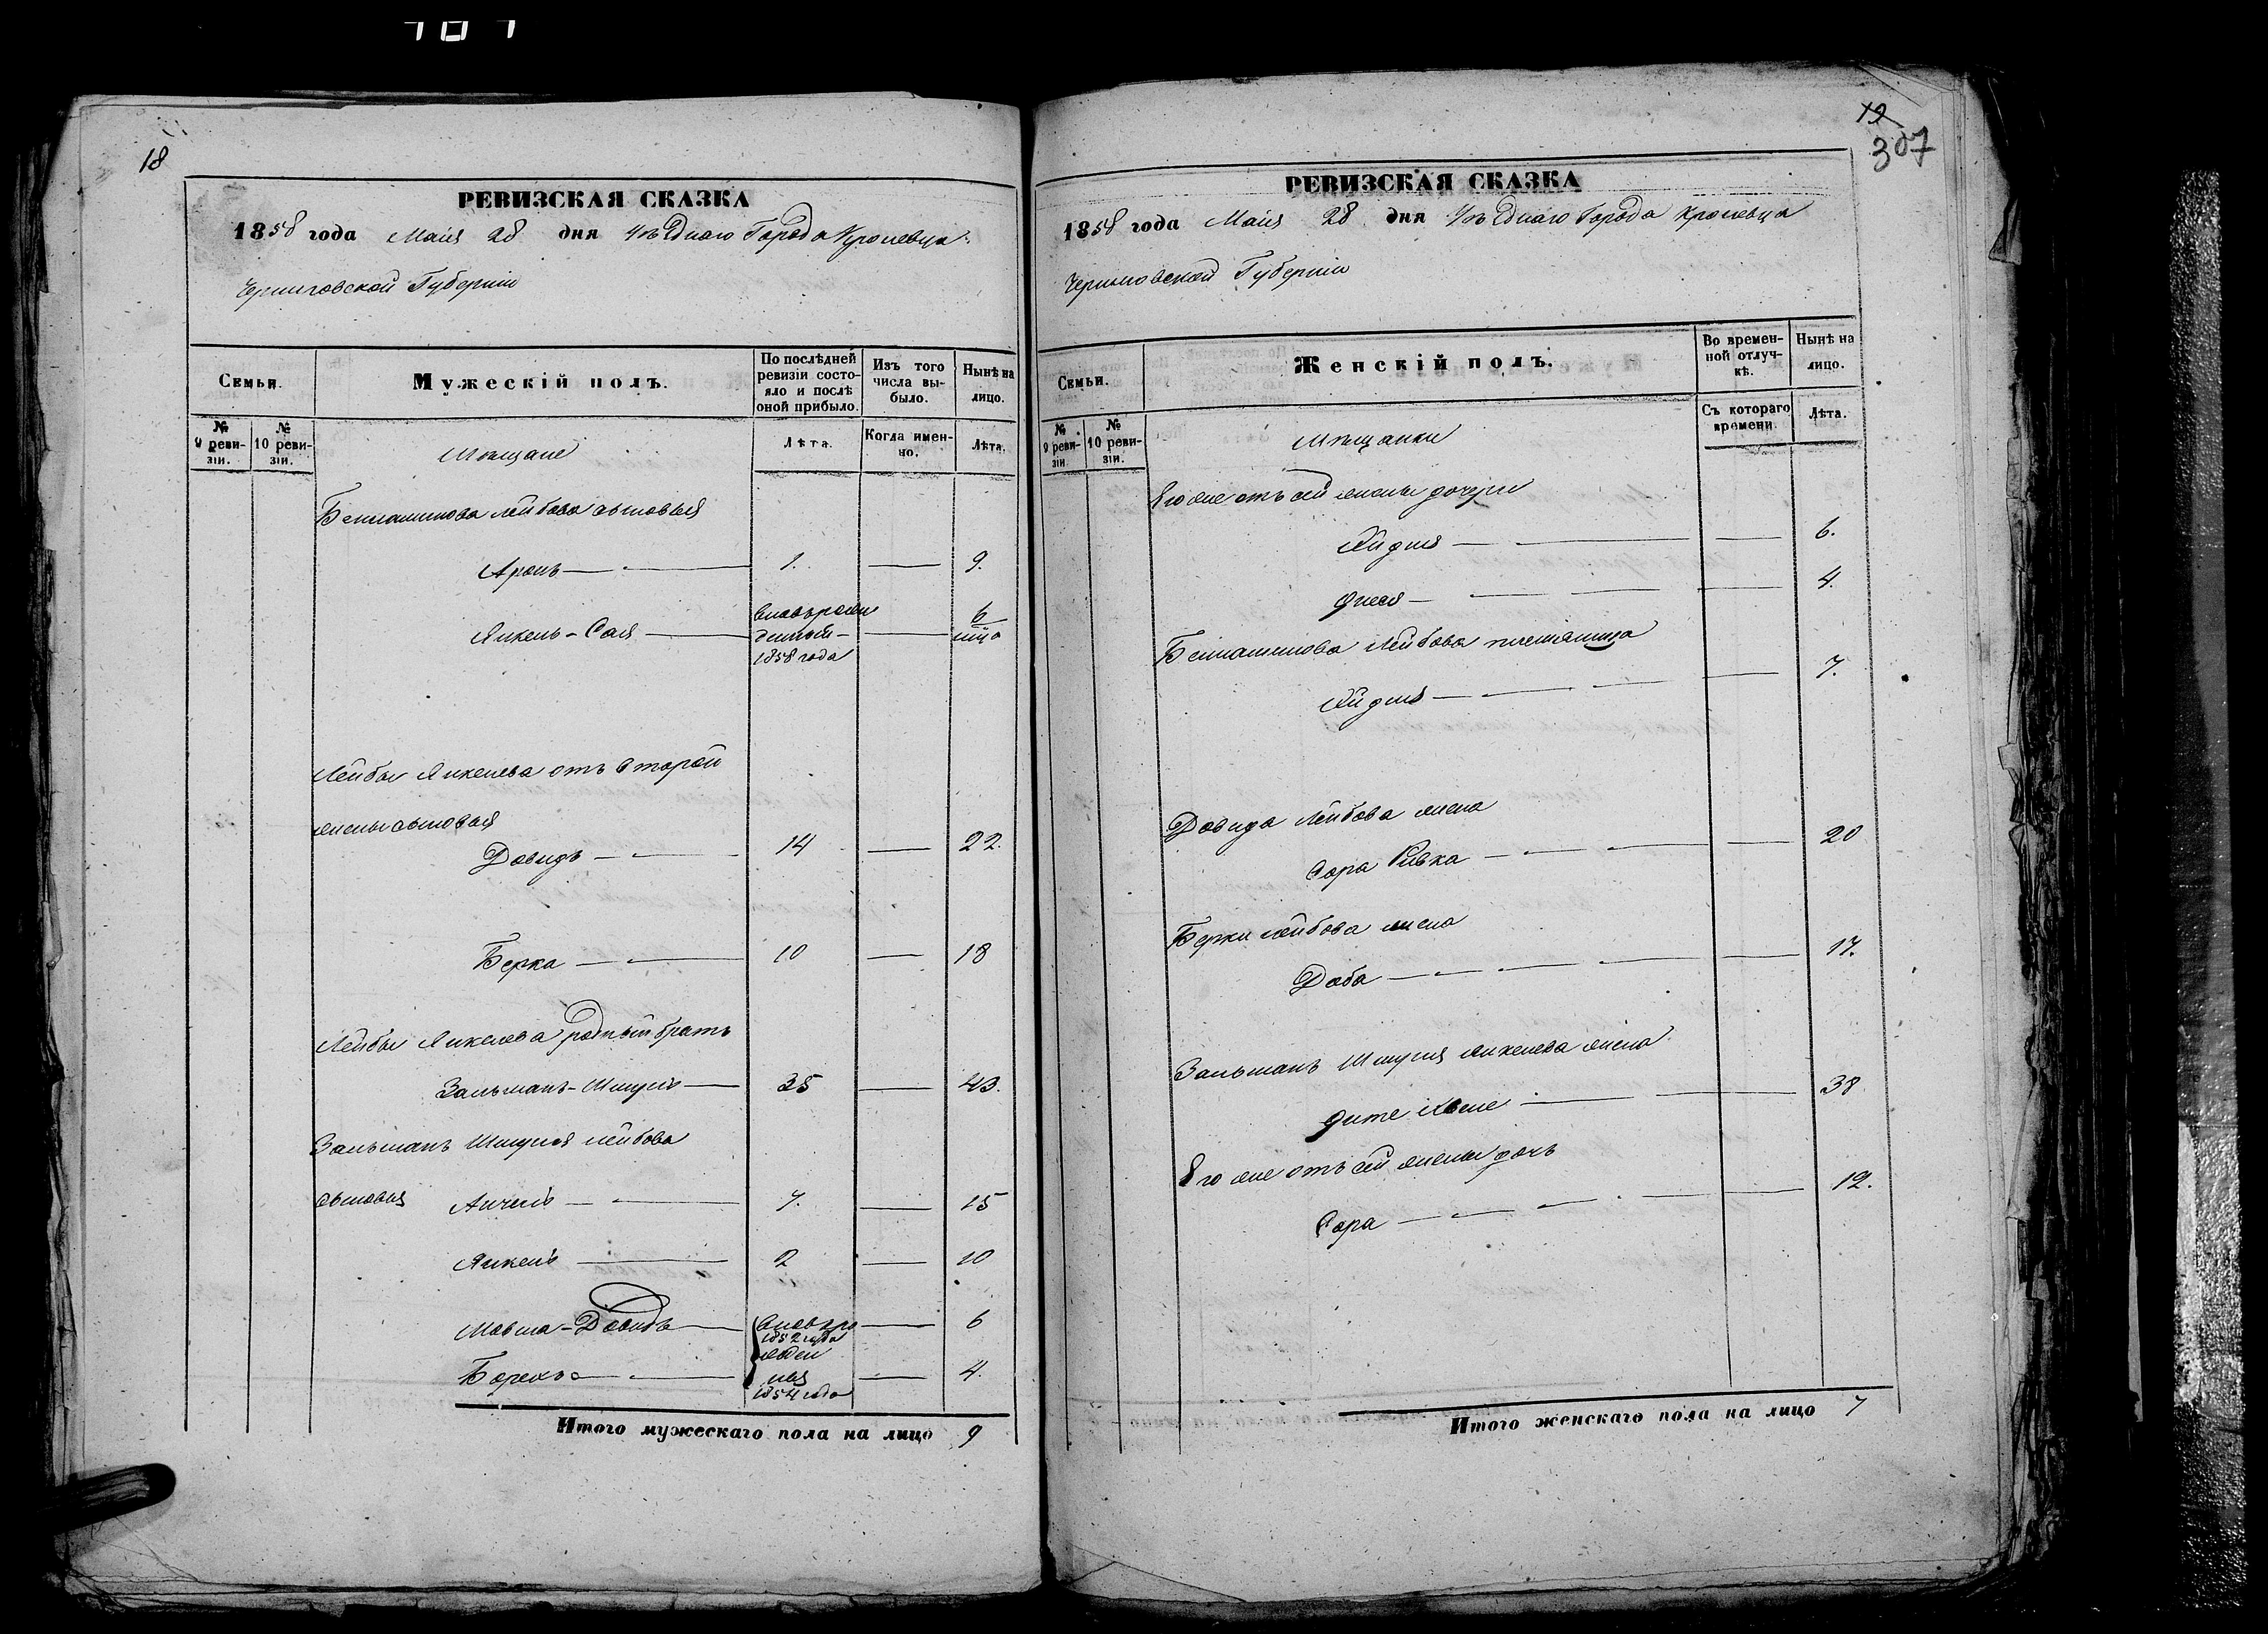 18
РЕВИЗСКАЯ СКАЗКА
1858 года Маия 28 дня Уѣзднаго Города Кролевца
Черниговской Губерніи
Семьи.
Мужескій полъ.
По послѣдней ревизіи состояло и послѣ оной прибыло.
Изъ того числа выбыло.
Нынѣ на лицо.
№ 9 ревизіи.
№ 10 ревизіи.
Мѣщане
Лѣта.
Когда именно.
Лѣта.
Беніаминова Лейбова сыновья
Аронъ 1. 9.
Янкель-Сая
1858 года
6
Лейбы Янкелева отъ второй
жены сыновья
Довидъ 14 22.
Берка 10 18
Лейбы Янкелева родный братъ
Зальманъ-Шмуль 35 43.
Зальманъ Шмуля Лейбова
сыновья Анчель 7. 15
Янкель 2 10
Мовша-Довидъ 6
1852 года
Борохъ 4.
1854 года
Итого мужескаго пола на лицо 9
19
307
РЕВИЗСКАЯ СКАЗКА
1858 года Маия 28 дня Уѣзднаго Города Кролевца
Черниговской Губерніи
Семьи.
Женскій полъ.
Во временной отлучкѣ.
Нынѣ на лицо.
№ 9 ревизіи.
№ 10 ревизіи.
Мѣщанки
Съ котораго времени.
Лѣта.
Его же отъ сей жены дочери
6.
4.
Беніаминова Лейбова племяница
7.
Довида Лейбова жена
Сора Ривка 20
Берки Лейбова жена
Доба 17.
Зальманъ Шмуля Янкелева жена
38
Его же отъ сей жены дочь
Сора 12.
Итого женскаго пола на лицо 7